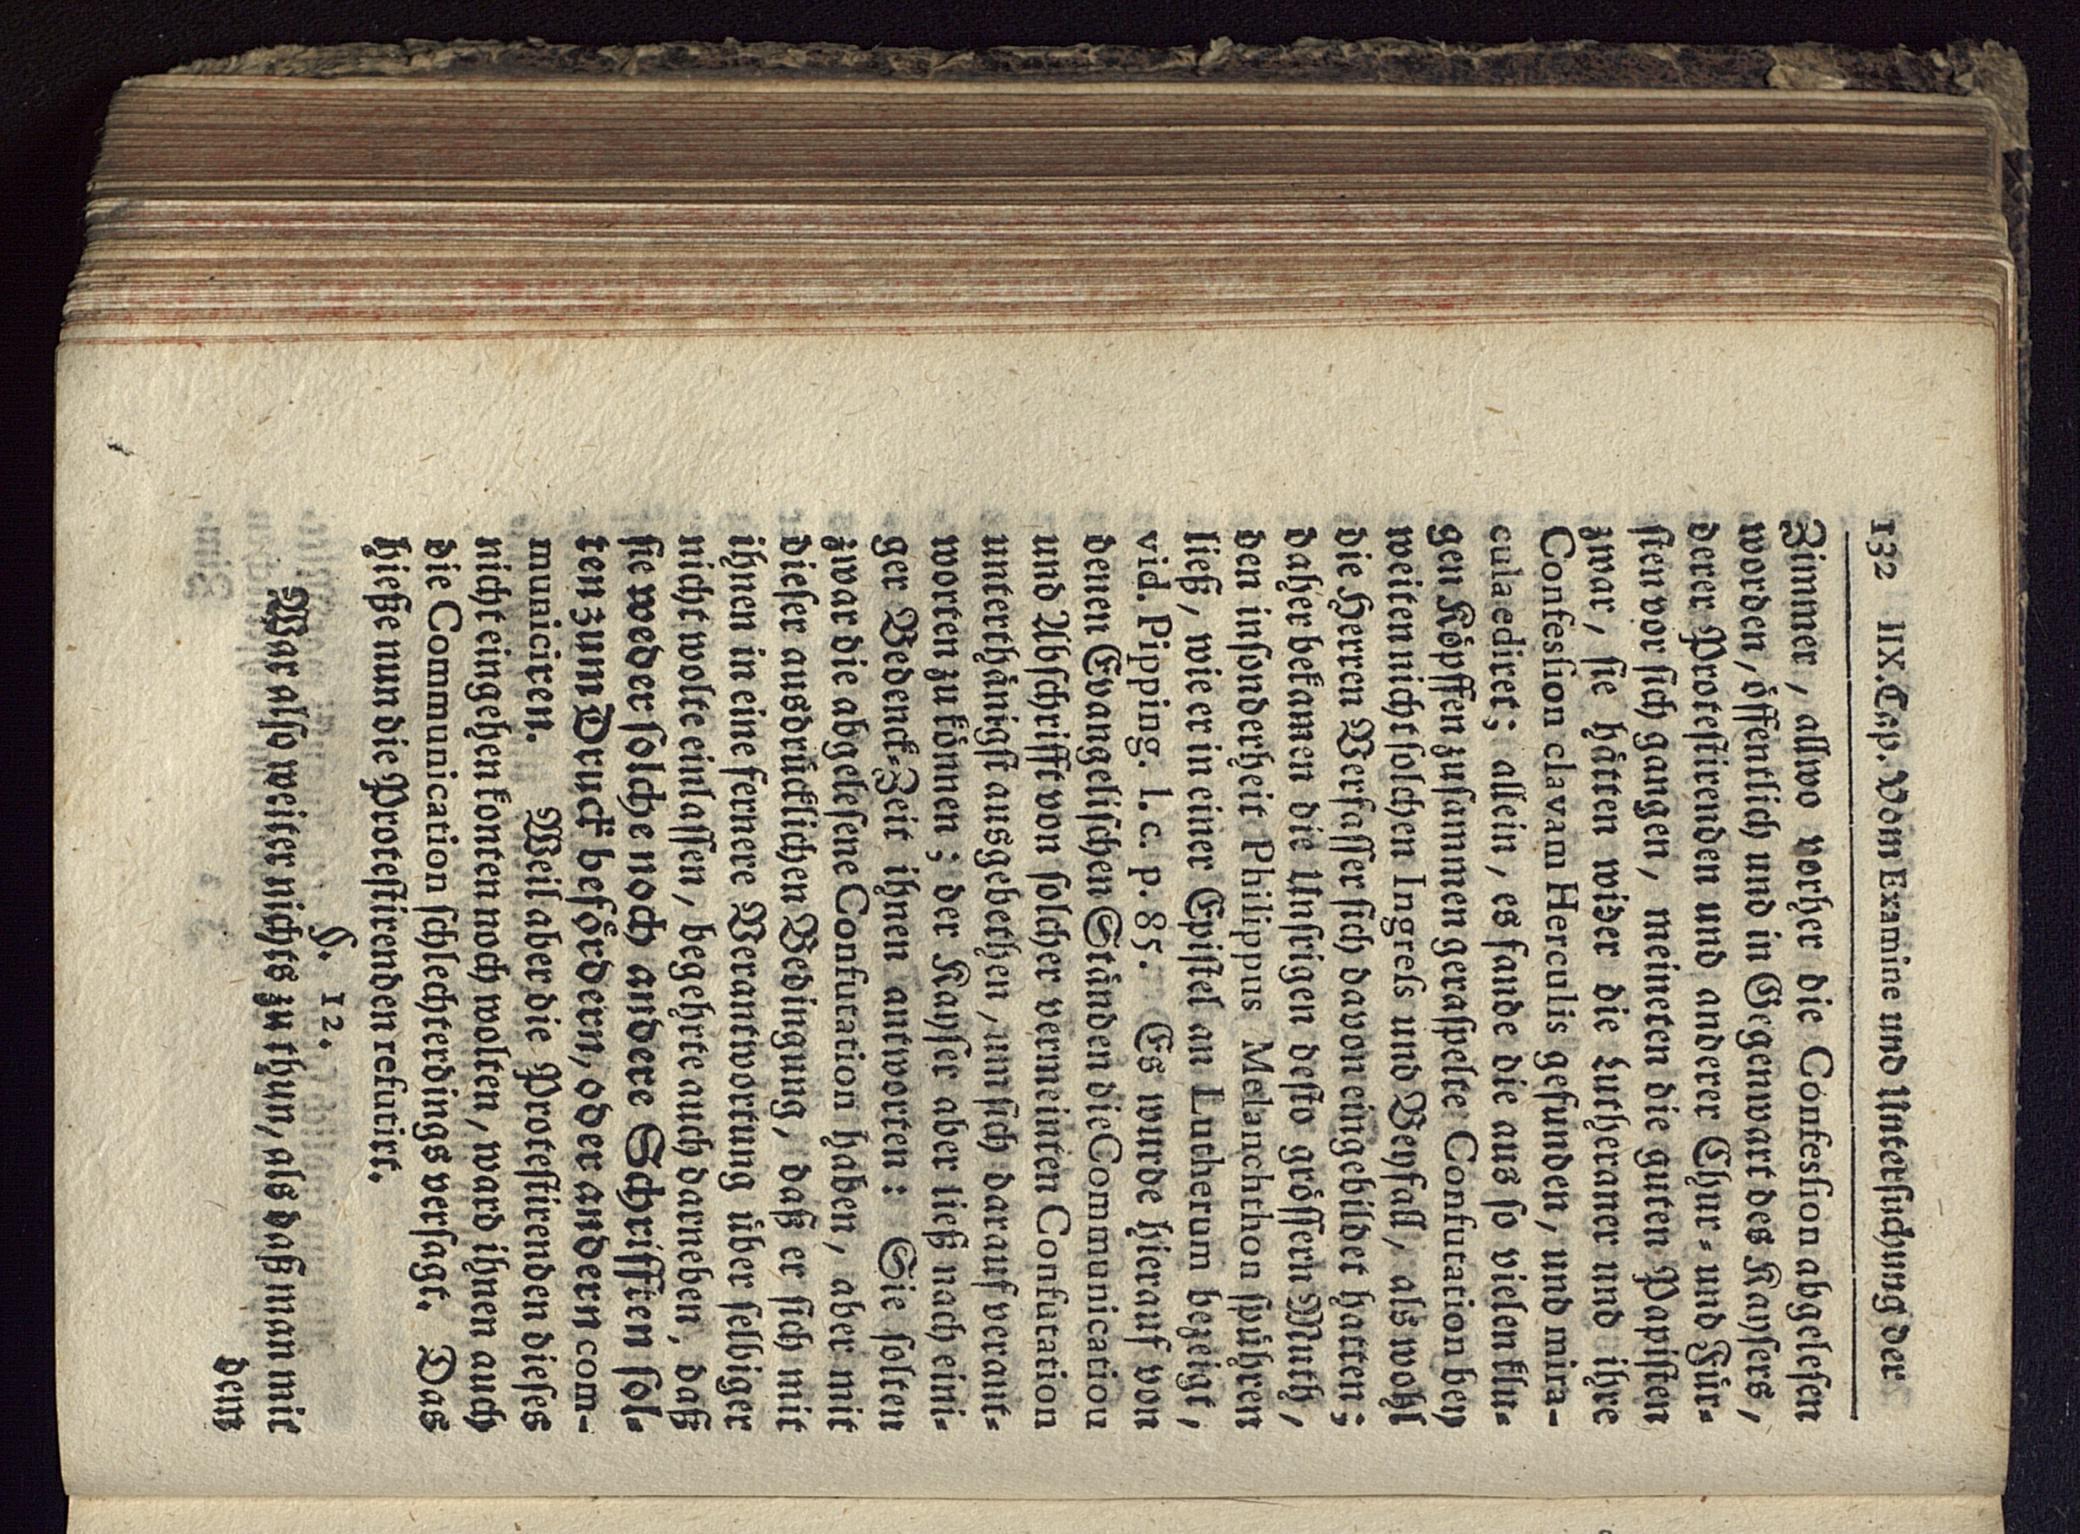 132 IIX. Cap. Vom Examine und Unterſuchung der
Zimmer, allwo vorher die Confesſion abgeleſen
worden, öffentlich und in Gegenwart des Kayſers,
derer Proteſtirenden und anderer Chur- und Für-
ſten vor ſich gangen, meineten die guten Papiſten
zwar, ſie hätten wider die Lutheraner und ihre
Confesſion clavam Herculis gefunden, und mira-
cula ediret; allein, es fande die aus ſo vielen klu-
gen Köpffen zuſammen geraſpelte Confutation bey
weiten nicht ſolchen Ingreſs und Beyfall, als wohl
die Herren Verfaſſer ſich davon eingebildet hatten;
daher bekamen die Unſrigen deſto gröſſern Muth,
den inſonderheit Philippus Melanchthon ſpühren
ließ, wie er in einer Epiſtel an Lutherum bezeigt,
vid. Pipping. l. c. p. 85. Es wurde hierauf von
denen Evangeliſchen Ständen die Communication
und Abſchrifft von ſolcher vermeinten Confutation
unterthänigſt ausgebethen, um ſich darauf verant-
worten zu können; der Kayſer aber ließ nach eini-
ger Bedenck-Zeit ihnen antworten: Sie ſolten
zwar die abgeleſene Confutation haben, aber mit
dieſer ausdrücklichen Bedingung, daß er ſich mit
ihnen in eine fernere Verantwortung über ſelbiger
nicht wolte einlaſſen, begehrte auch darneben, daß
ſie weder ſolche noch andere Schrifften ſol-
ten zum Druck befördern, oder andern com-
municiren. Weil aber die Proteſtirenden dieſes
nicht eingehen konten noch wolten, ward ihnen auch
die Communication ſchlechterdings verſagt. Das
hieße nun die Proteſtirenden refutirt.
§. 12.
War alſo weiter nichts zu thun, als daß man mit
dem